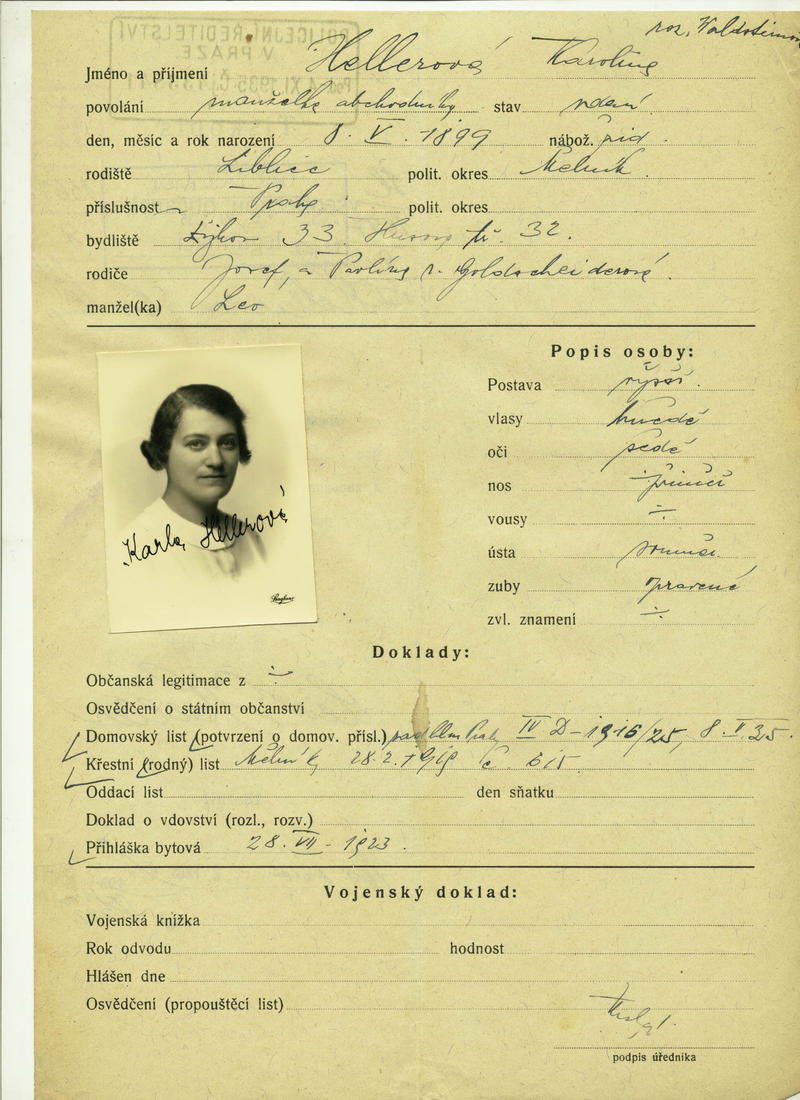 roz.
Jméno a příjmení Hellerová Karolina
povolání manželka obchodníka stav vdaná
den, měsíc a rok narození 8. V. 1899 nábož. žid.
rodiště Liblice polit. okres Mělník.
příslušnost Praha polit. okres
bydliště Žižkov 33 Husova tř. 32.
rodiče Josef, a Pavlína r. Goldscheiderová.
manžel(ka) Leo
Popis osoby:
Postava
vlasy hnědé
oči šedé
nos
vousy ÷
ústa souměr.
zuby spravené
zvl. znamení ÷
Karla Hellerová
Doklady:
Občanská legitimace z ÷
Osvědčení o státním občanství
Domovský list (potvrzení o domov. přísl.) IV D-1916/25, 8. V. 35.
Křestní (rodný) list Mělník 28.2.1919 č. 615
Oddací list den sňatku
Doklad o vdovství (rozl., rozv.)
Přihláška bytová 28. VII - 1923.
Vojenský doklad:
Vojenská knížka
Rok odvodu hodnost
Hlášen dne
Osvědčení (propouštěcí list)
podpis úředníka